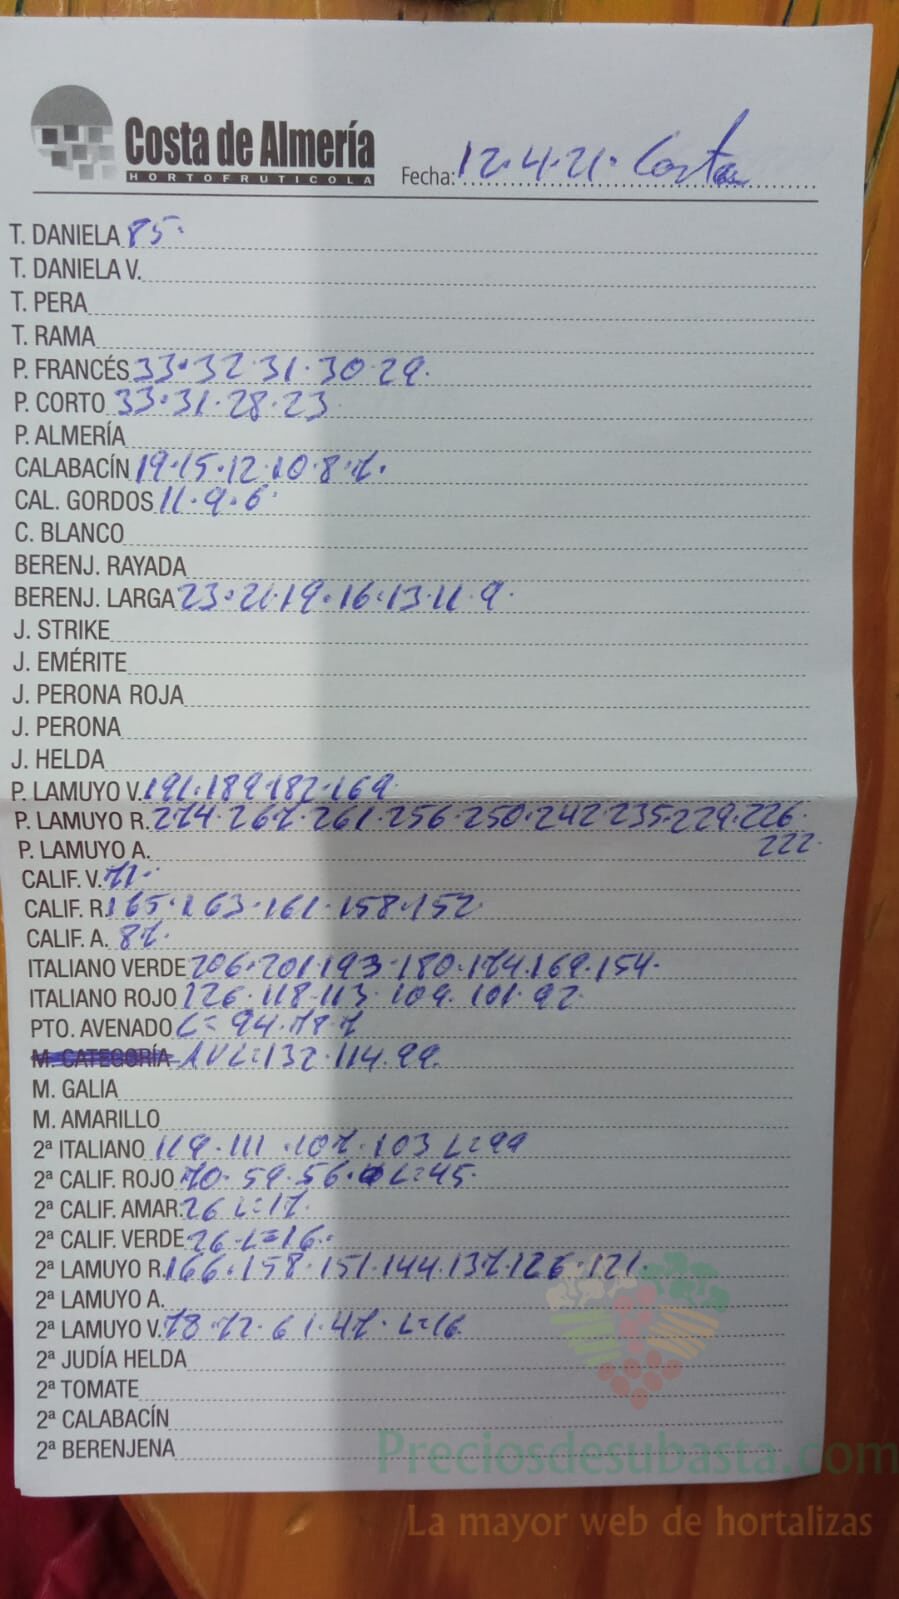 Costa de Almería
HORTOFRUTICOLA
Fecha: 12.4.21. Costa
T. DANIELA 85.
T. DANIELA V.
T. PERA
T. RAMA
P. FRANCÉS 33.32.31.30.29.
P. CORTO 33.31.28.23
P. ALMERÍA
CALABACÍN 19.15.12.10.8.7.
CAL. GORDOS 11.9.6.
C. BLANCO
BERENJ. RAYADA
BERENJ. LARGA 23.21.19.16.13.11.9.
J. STRIKE
J. EMÉRITE
J. PERONA ROJA
J. PERONA
J. HELDA
P. LAMUYO V. 191.189.182.169.
P. LAMUYO R. 274.267.261.256.250.242.235.229.226.
222.
P. LAMUYO A.
CALIF. V. 71.
CALIF. R. 165.163.161.158.152.
CALIF. A. 87.
ITALIANO VERDE 206.201.193.180.174.169.154.
ITALIANO ROJO 126.118.113.109.101.92.
PTO. AVENADO L=94.78.7
M. CATEGORÍA AVL=132.114.99.
M. GALIA
M. AMARILLO
2ª ITALIANO 119.111.107.103 L=99
2ª CALIF. ROJO 70.59.56. L=45.
2ª CALIF. AMAR. 26 L=17.
2ª CALIF. VERDE 26.L=16.
2ª LAMUYO R. 166.158.151.144.137.126.121.
2ª LAMUYO A.
2ª LAMUYO V. 78.72.61.47.L=16.
2ª JUDÍA HELDA
2ª TOMATE
2ª CALABACÍN
2ª BERENJENA
Preciosdesubasta.com
La mayor web de hortalizas